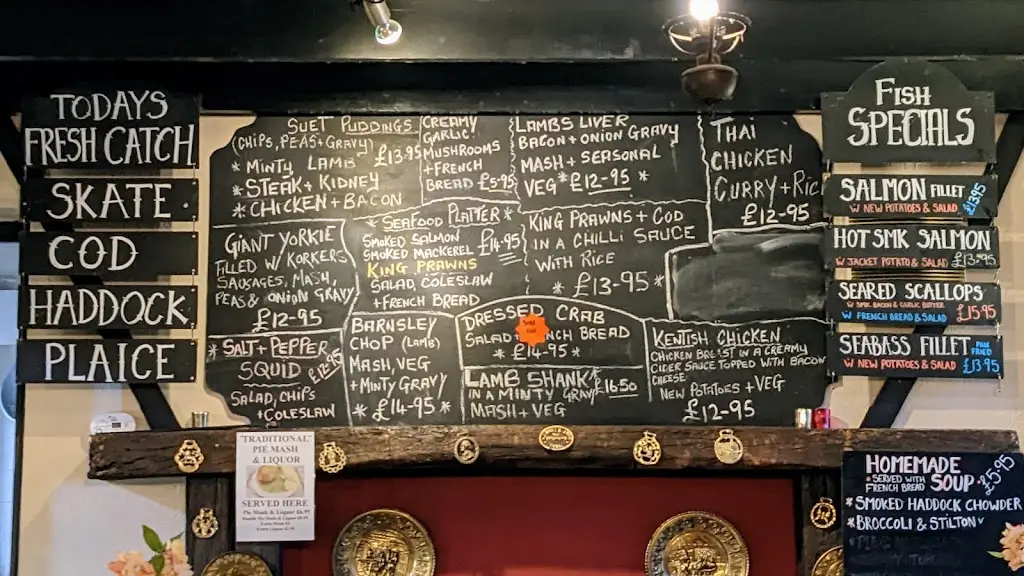 TODAYS
FRESH CATCH
SKATE
COD
HADDOCK
PLAICE
SUET PUDDINGS
(CHIPS, PEAS+GRAVY)
* MINTY LAMB £13.95
* STEAK + KIDNEY
* CHICKEN + BACON
CREAMY
GARLIC
MUSHROOMS
+ FRENCH
BREAD £5.95
LAMBS LIVER
BACON + ONION GRAVY
MASH + SEASONAL
VEG * £12-95 *
THAI
CHICKEN
CURRY + RICE
£12-95
GIANT YORKIE
FILLED W/ KORKERS
SAUSAGES, MASH,
PEAS & ONION GRAVY
£12-95
* SEAFOOD PLATTER *
SMOKED SALMON £14.95
SMOKED MACKEREL
KING PRAWNS
SALAD, COLESLAW
+ FRENCH BREAD
KING PRAWNS + COD
IN A CHILLI SAUCE
WITH RICE
* £13-95 *
* SALT + PEPPER
SQUID £12-95
SALAD, CHIPS
+ COLESLAW
BARNSLEY
CHOP (LAMB)
MASH, VEG
+ MINTY GRAVY
* £14-95 *
DRESSED CRAB
SALAD FRENCH BREAD
* £14-95 *
LAMB SHANK
IN A MINTY GRAVY £16-50
MASH + VEG
KENTISH CHICKEN
CHICKEN BREAST IN A CREAMY
CIDER SAUCE TOPPED WITH BACON
CHEESE
NEW POTATOES + VEG
£12-95
FISH
SPECIALS
SALMON FILLET £13.95
W NEW POTATOES & SALAD
HOT SMK SALMON
W JACKET POTATO & SALAD £13.95
SEARED SCALLOPS
W SMK BACON & GARLIC BUTTER £15.95
W FRENCH BREAD & SALAD
SEABASS FILLET PAN FRIED
W NEW POTATOES & SALAD £13.95
TRADITIONAL
PIE MASH
& LIQUOR
SERVED HERE
HOMEMADE
* SERVED WITH SOUP £5.95
FRENCH BREAD
* SMOKED HADDOCK CHOWDER
* BROCCOLI & STILTON V